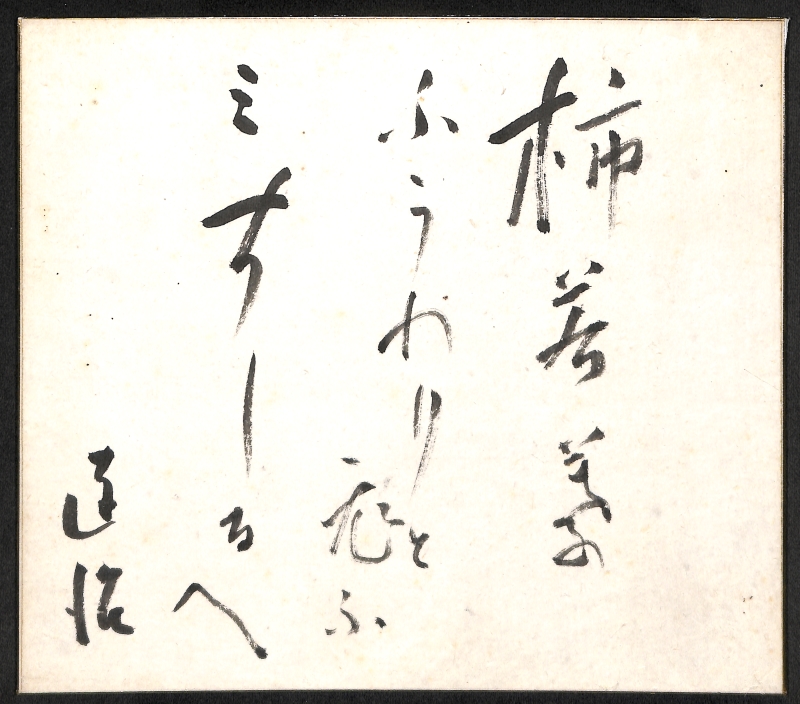 柿若葉
ふうわりと
飛ふ
ミちしるへ
達治